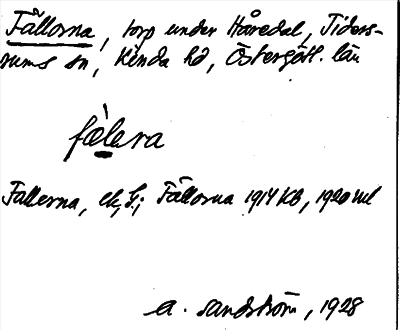 Fällorna, torp under Håredal, Tiders-
rums sn, Kinda hd, Östergötl. län
fὲlera
Fallerna, ek, G.; Fällorna 1914 KB, 1920 ml
A. Sandström, 1928